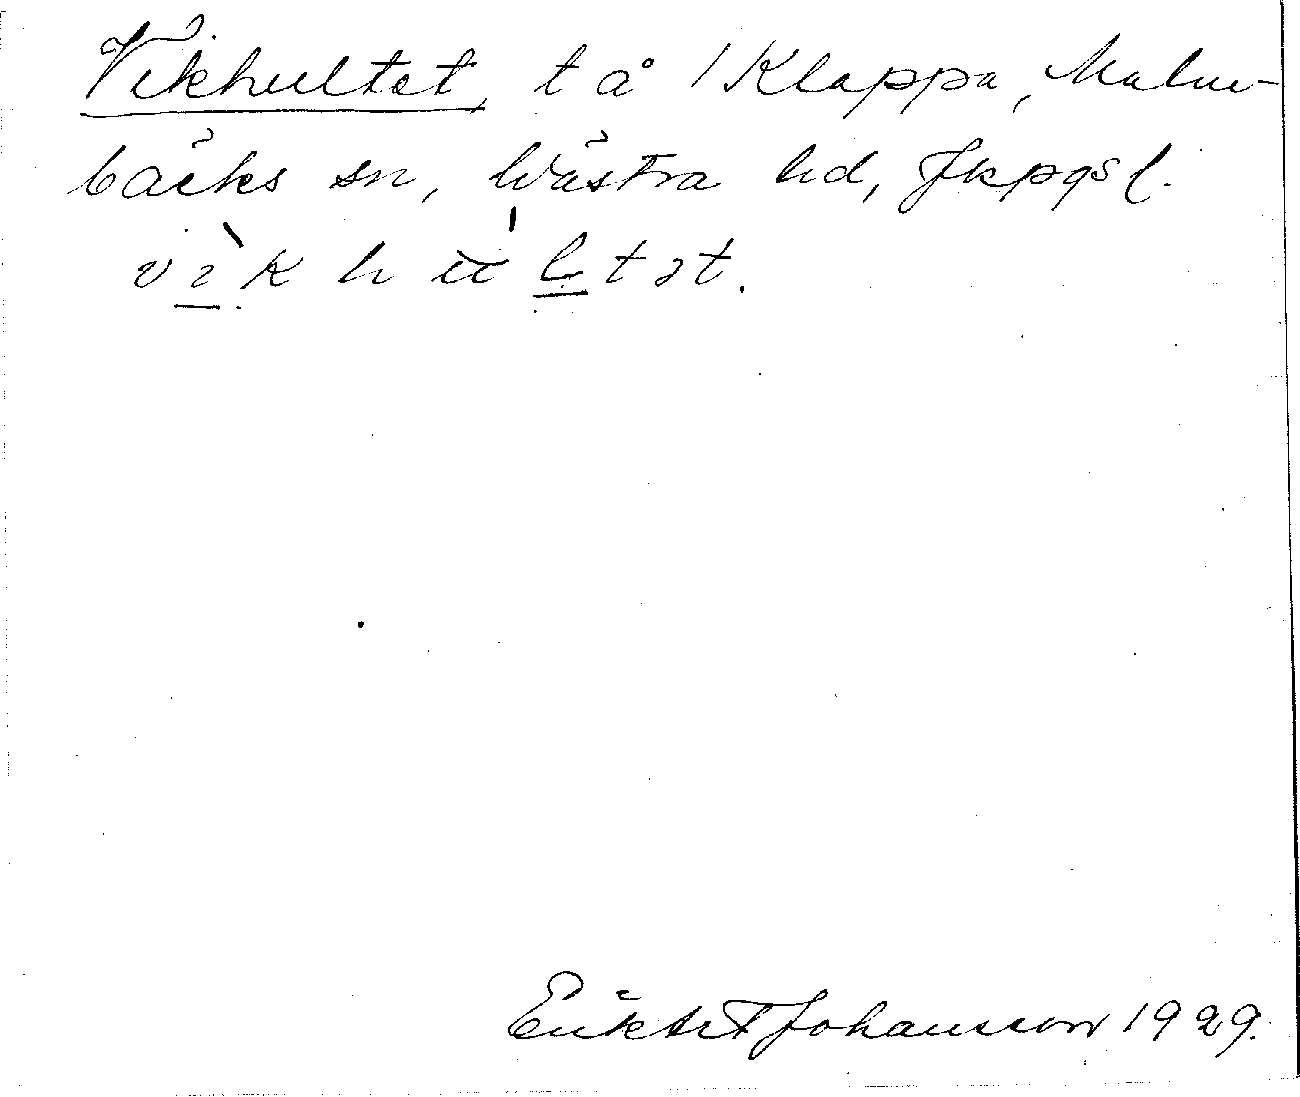 Vikhultet, t å i Klappa, Malm-
bäcks sn, Västra hd, Jkpgs l.
v i k h u l t ə t.
Johansson 1929.